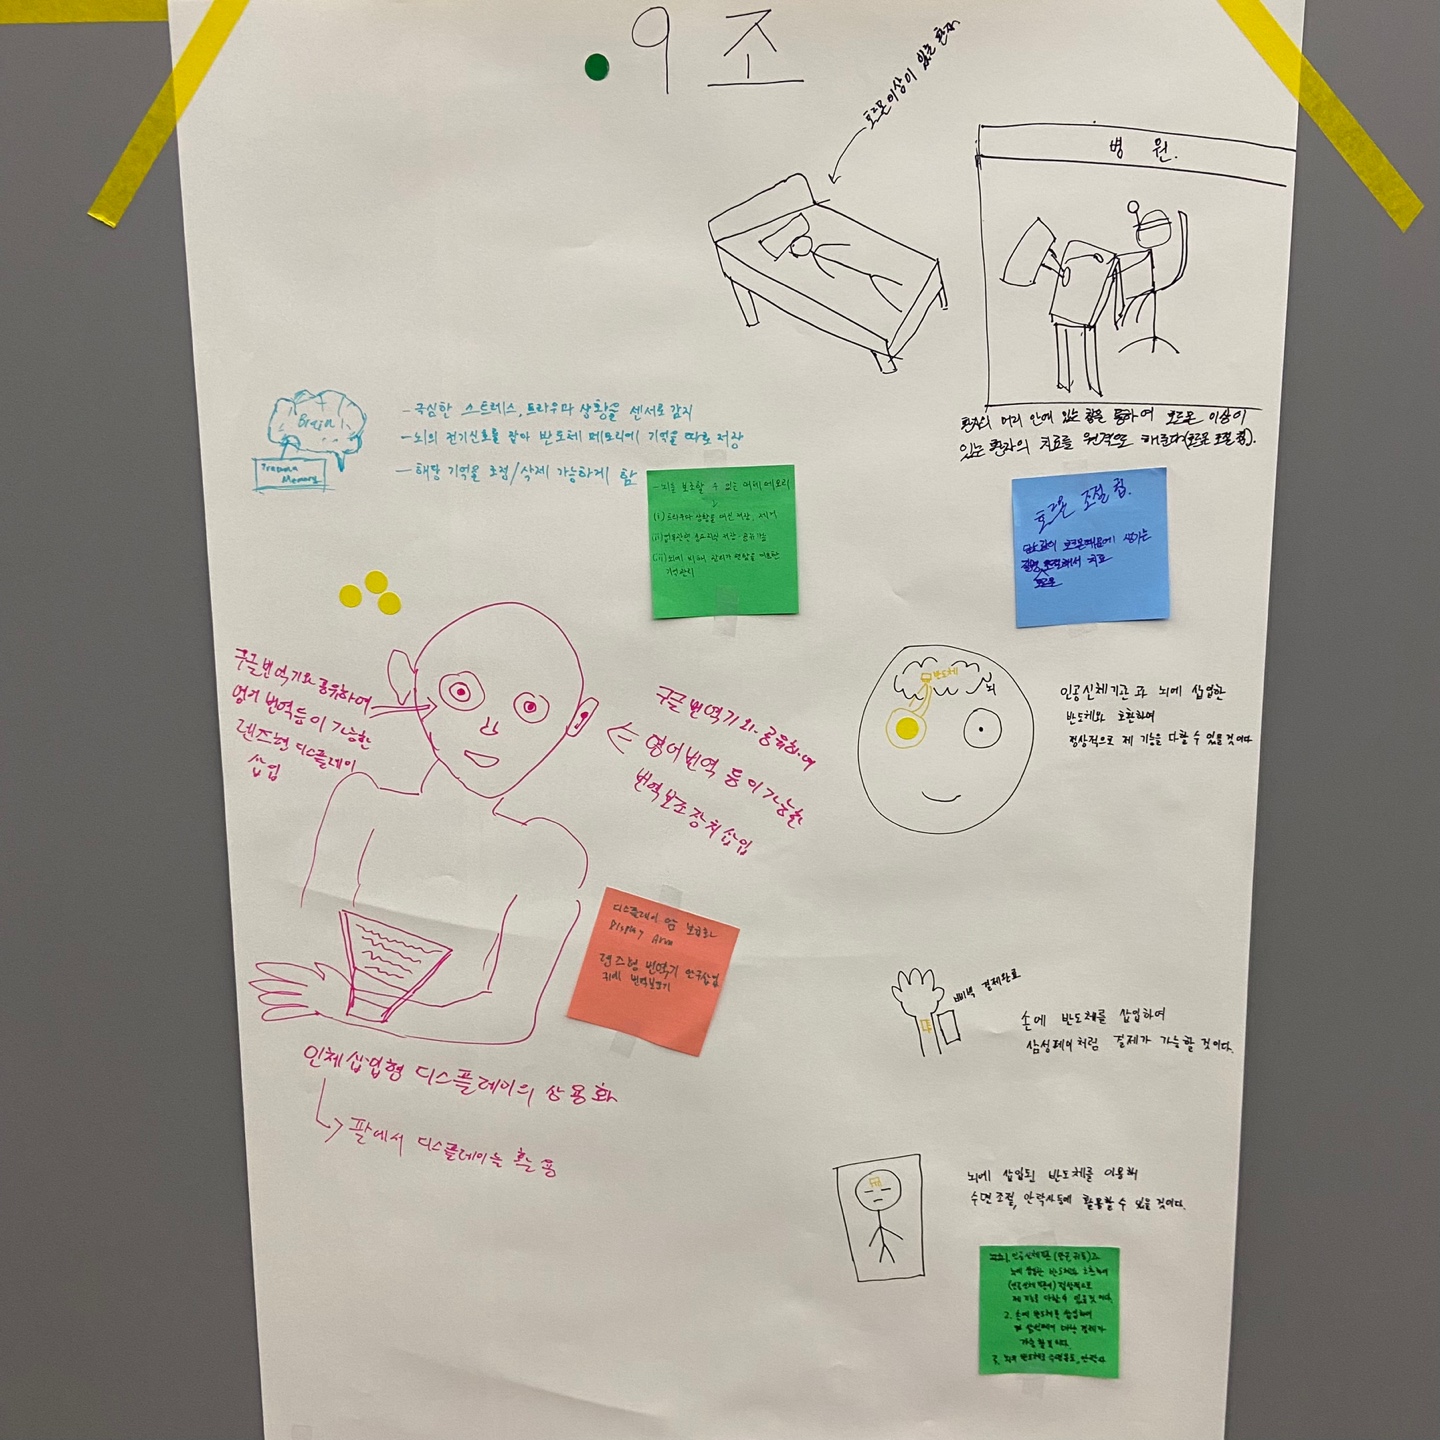 9 조
호르몬이상이 있는 환자
병 원.
환자의 머리 안에 있는 칩을 통하여 호르몬 이상이
있는 환자의 치료를 원격으로 해준다(호르몬 조절 칩).
Brain
Trauma
Memory
- 극심한 스트레스, 트라우마 상황을 센서로 감지
- 뇌의 전기신호를 잡아 반도체 메모리에 기억을 따로 저장
- 해당 기억을 조절/삭제 가능하게 함
- 뇌를 보호할 수 있는 메모리
(i) 트라우마 상황을 저장, 제거
호르몬 조절 칩.
호르몬때문에 생기는
질병 조절해서 치료
호르몬
구글번역기와 공유하여
영어 번역등이 가능한
렌즈형 디스플레이
삽입
구글 번역기와 공유하여
영어번역 등이 가능한
번역보조장치 삽입
반도체
뇌
인공신체기관과 뇌에 삽입한
반도체와 호환하여
정상적으로 제 기능을 다할 수 있을 것이다
디스플레이 암 보급화
Display Arm
렌즈형 번역기 안구삽입
귀에 번역보조기
인체삽입형 디스플레이의 상용화
팔에서 디스플레이를 활용
삐비빅 결제완료
손에 반도체를 삽입하여
삼성페이처럼 결제가 가능할 것이다.
뇌에 삽입된 반도체를 이용해
수면조절, 안락사등에 활용할 수 있을 것이다.
뇌에 삽입한 반도체와 호환하여
정상적으로
제 기능을 다할 수 있을 것이다.
2. 손에 반도체를 삽입하여
가능할 것이다.